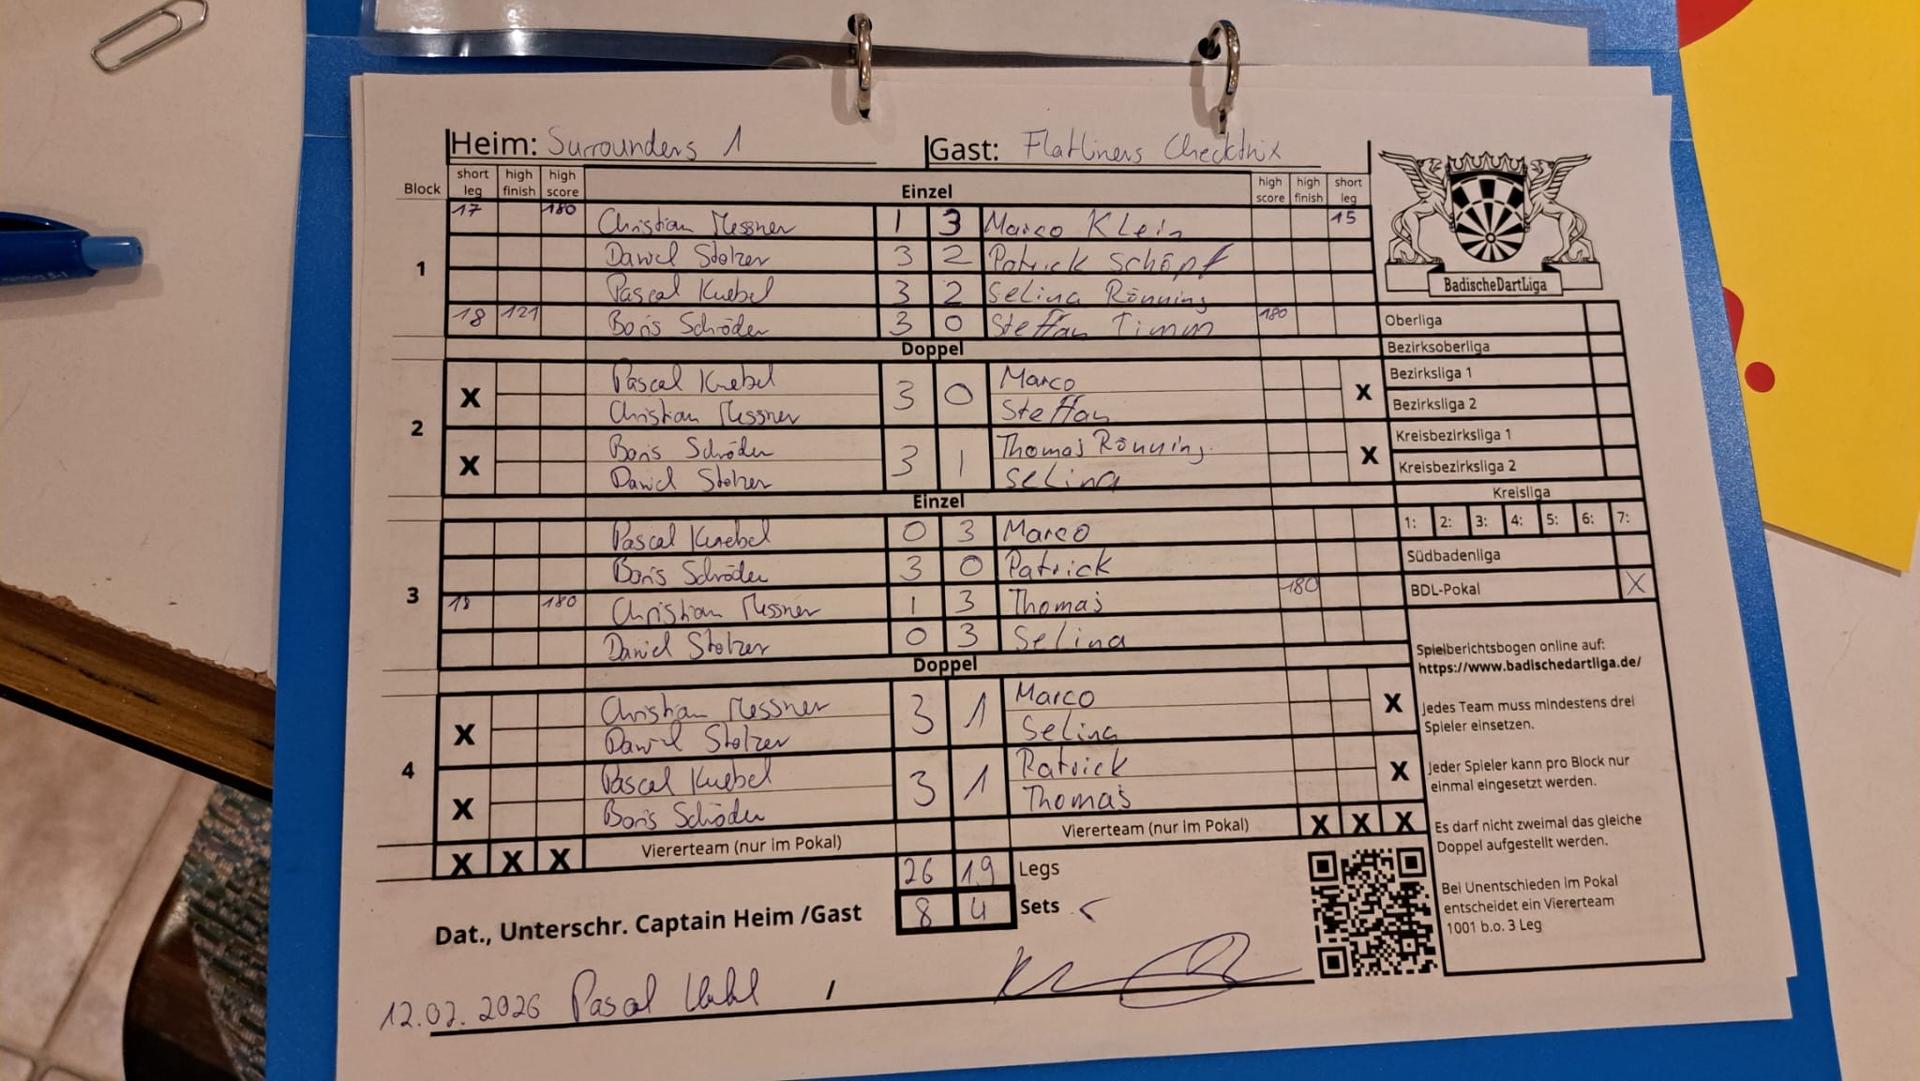 Heim: Surrounders 1 Gast: Flatliners Checktrix
Block short leg high finish high score Einzel high score high finish short leg
1
17 180 Christian Messner 1 3 Marco Klein 15
Daniel Stolzer 3 2 Patrick Schöpf
Pascal Knebel 3 2 Selina Rönning
18 121 Boris Schröder 3 0 Steffan Timm 180
Doppel
2
X Pascal Knebel 3 0 Marco X
Christian Messner Steffan
X Boris Schröder 3 1 Thomas Rönning X
Daniel Stolzer Selina
Einzel
3
Pascal Knebel 0 3 Marco
Boris Schröder 3 0 Patrick
18 180 Christian Messner 1 3 Thomas 180
Daniel Stolzer 0 3 Selina
Doppel
4
X Christian Messner 3 1 Marco X
Daniel Stolzer Selina
X Pascal Knebel 3 1 Patrick X
Boris Schröder Thomas
X X X Viererteam (nur im Pokal) Viererteam (nur im Pokal) X X X
26 19 Legs
8 4 Sets
Dat., Unterschr. Captain Heim /Gast
12.02.2026 Pascal /
BadischeDartLiga
Oberliga
Bezirksoberliga
Bezirksliga 1
Bezirksliga 2
Kreisbezirksliga 1
Kreisbezirksliga 2
Kreisliga
1: 2: 3: 4: 5: 6: 7:
Südbadenliga
BDL-Pokal X
Spielberichtsbogen online auf:
https://www.badischedartliga.de/
Jedes Team muss mindestens drei
Spieler einsetzen.
Jeder Spieler kann pro Block nur
einmal eingesetzt werden.
Es darf nicht zweimal das gleiche
Doppel aufgestellt werden.
Bei Unentschieden im Pokal
entscheidet ein Viererteam
1001 b.o. 3 Leg